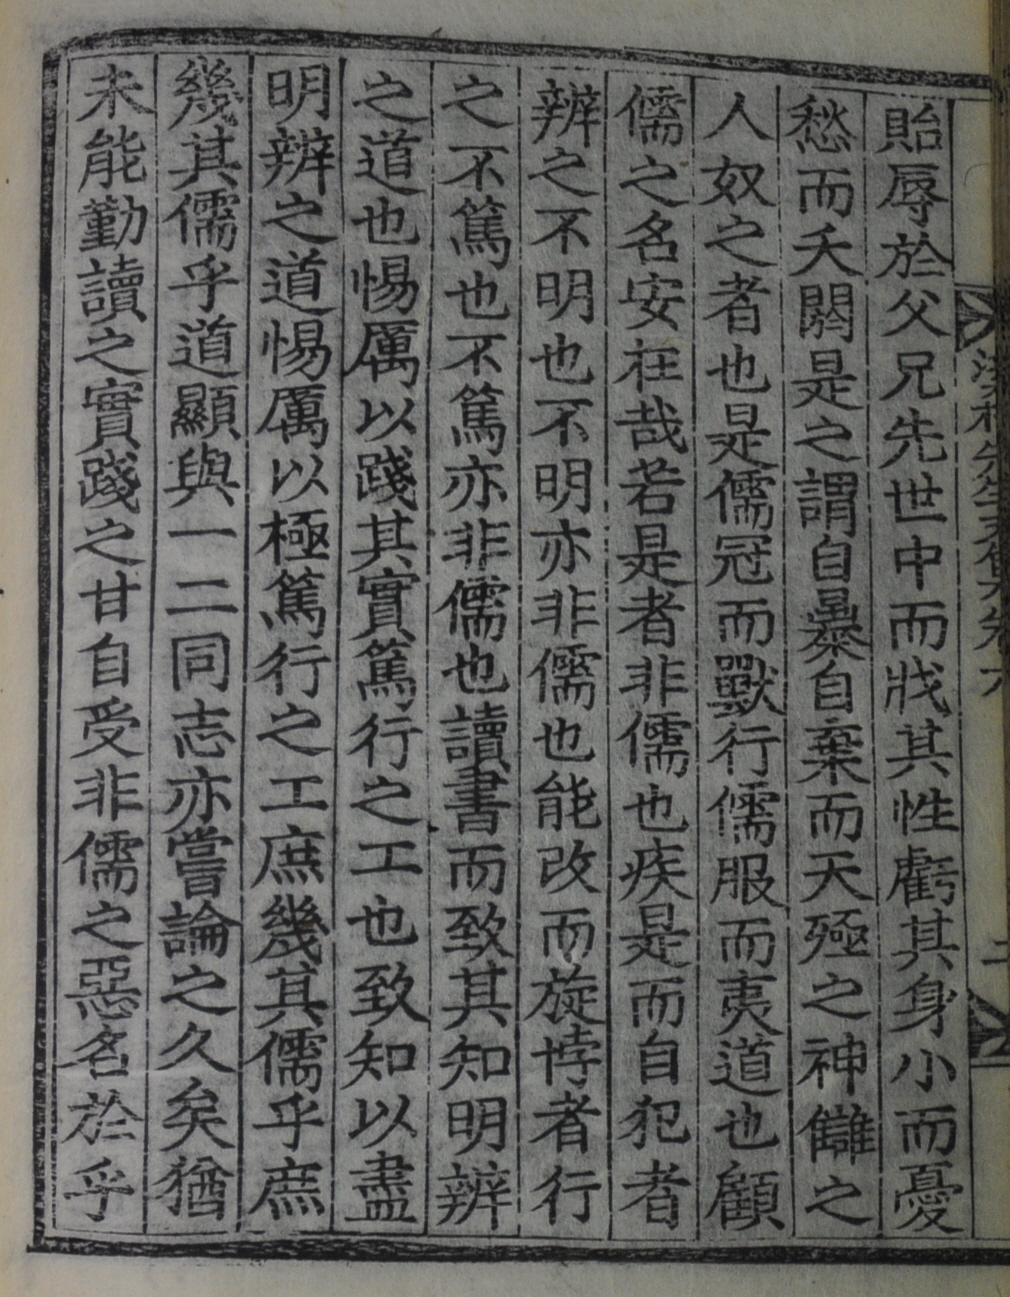 貽辱於父兄先世中而戕其性虧其身小而憂
愁而夭閼是之謂自暴自棄而天殛之神讎之
人奴之者也是儒冠而獸行儒服而夷道也顧
儒之名安在哉若是者非儒也疾是而自犯者
辨之不明也不明亦非儒也能改而旋悖者行
之不篤也不篤亦非儒也讀書而致其知明辨
之道也惕厲以踐其實篤行之工也致知以盡
明辨之道惕厲以極篤行之工庶幾其儒乎庶
幾其儒乎道顯與一二同志亦嘗論之久矣猶
未能勤讀之實踐之甘自受非儒之惡名於乎